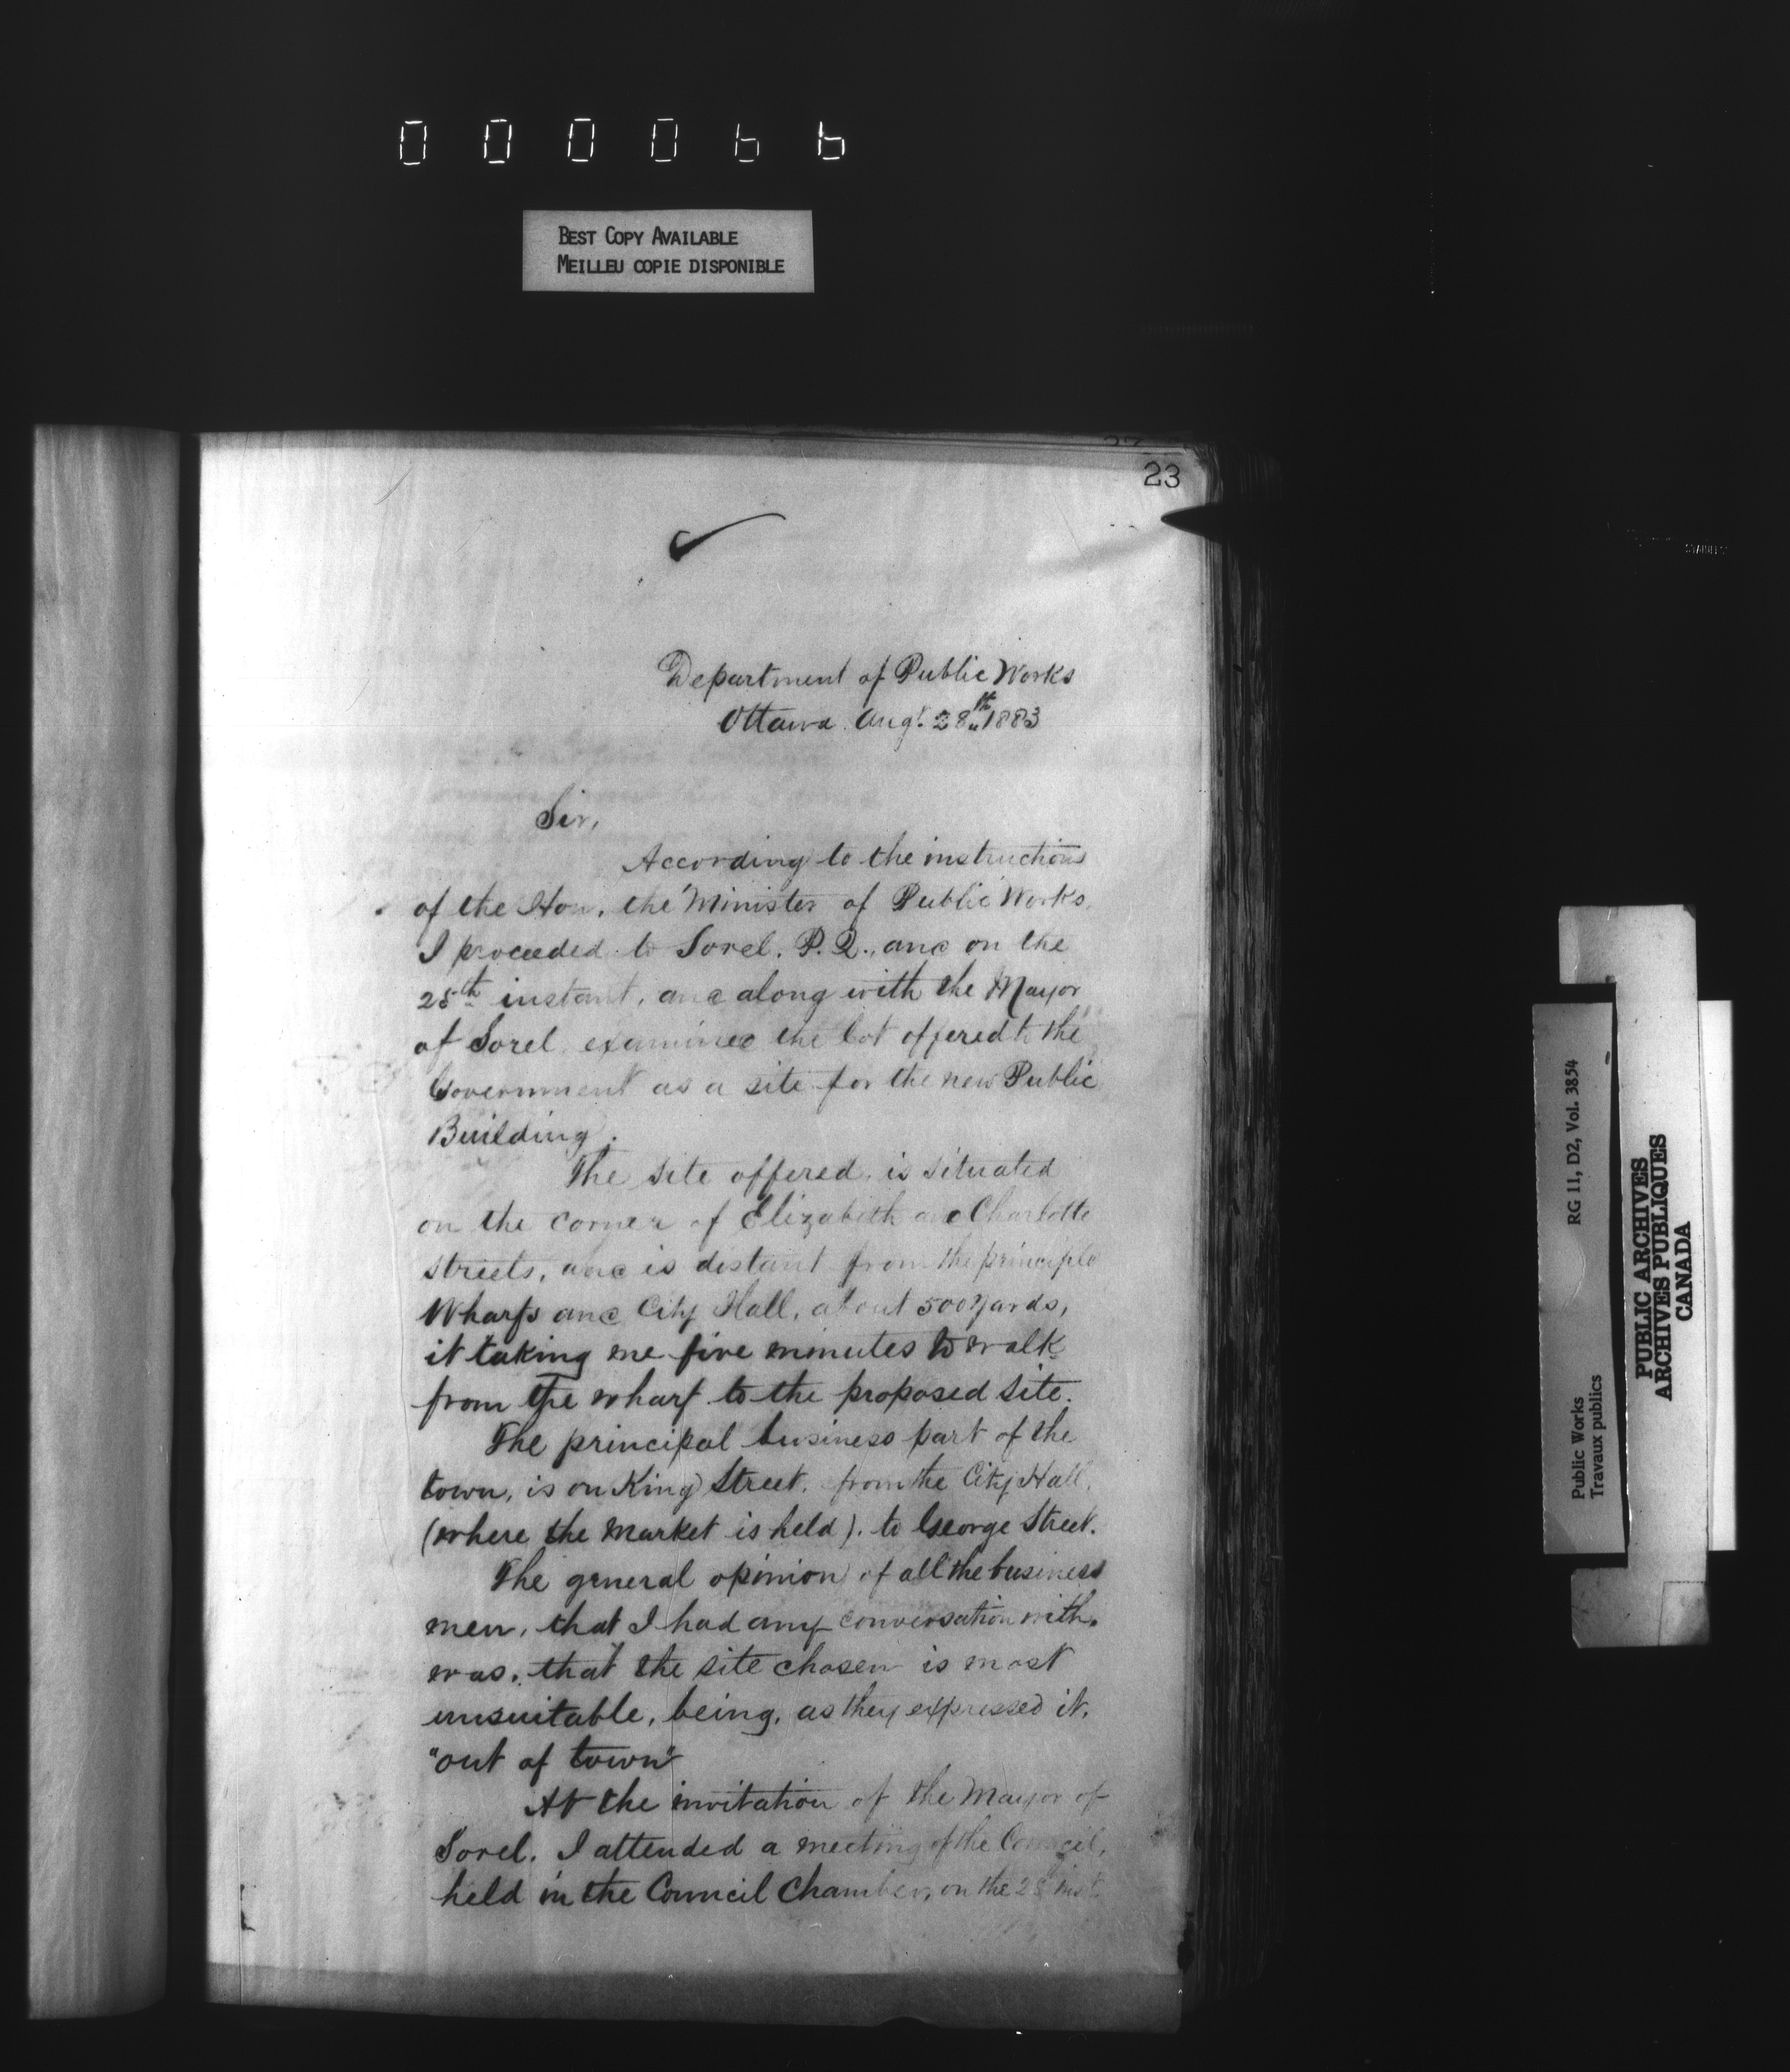 000066
BEST COPY AVAILABLE
MEILLEU COPIE DISPONIBLE
23
Department of Public Works
Ottawa Augt. 28th 1883
Sir,
According to the instructions
of the Hon. the Minister of Public Works,
I proceeded to Sorel, P.Q., and on the
25th instant, and along with the Mayor
of Sorel, examined the lot offered to the
Government as a site for the new Public
Building.
The site offered, is situated
on the corner of Elizabeth and Charlotte
streets, and is distant from the principle
Wharfs and City Hall, about 500 yards,
it taking me five minutes to walk
from the wharf to the proposed site.
The principal business part of the
town, is on King Street, from the City Hall,
(where the market is held), to George Street.
The general opinion of all the business
men, that I had any conversation with,
was, that the site chosen is most
unsuitable, being, as they expressed it,
"out of town"
At the invitation of the Mayor of
Sorel, I attended a meeting of the Council,
held in the Council Chamber, on the inst.
Public Works
Travaux publics
RG 11, D2, Vol. 3854
PUBLIC ARCHIVES
ARCHIVES PUBLIQUES
CANADA